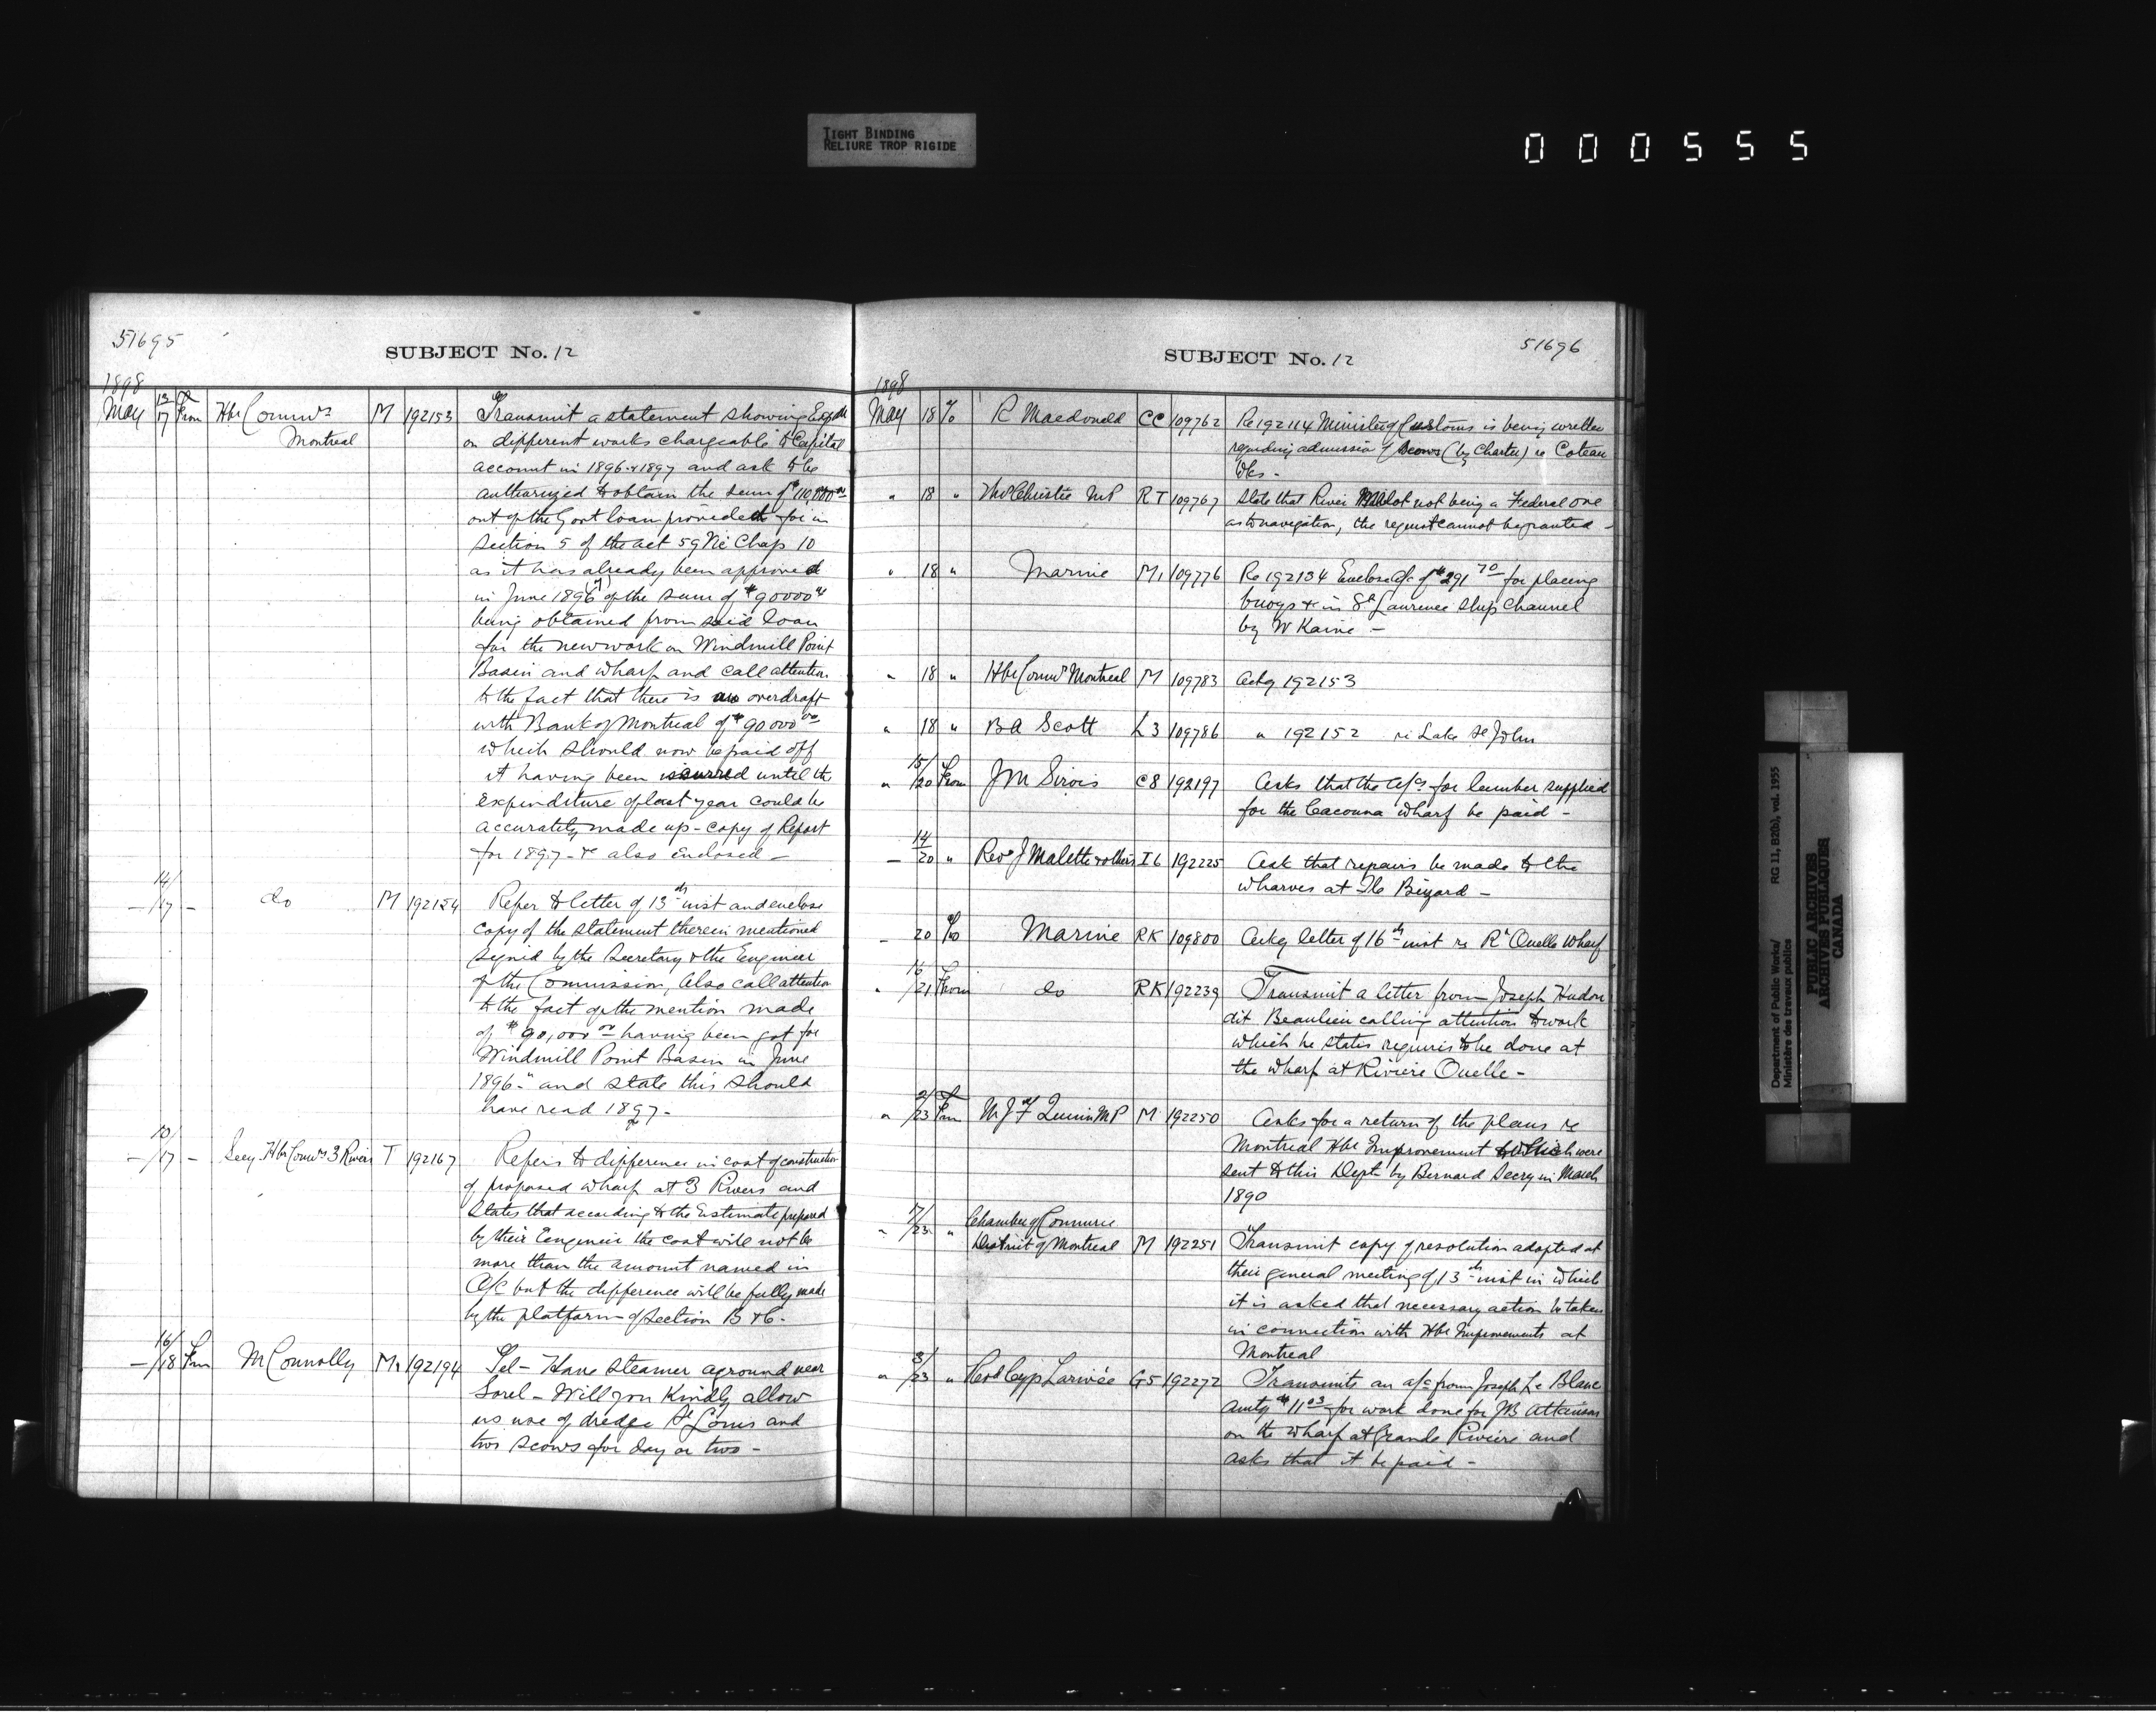 TIGHT BINDING
RELIURE TROP RIGIDE
000555
51695
SUBJECT No. 12
1898
May 13/17 From Hbr Commrs Montreal M 192153 Transmit a statement showing Expdre
on different works chargeable to Capital
account in 1896 & 1897 and ask to be
authorized to obtain the sum of $110,000.00
out of the Govt loan provided for in
Section 5 of the act 59 Vic Chap 10
as it has already been approved
in June 1896 (7) of the sum of $90000.00
being obtained from said loan
for the new work on Windmill Point
Basin and wharf and call attention
to the fact that there is an overdraft
with Bank of Montreal of $90000.00
which should now be paid off
it having been incurred until the
expenditure of last year could be
accurately made up - copy of Report
for 1897 - &c also enclosed -
— 14/17 — do M 192154 Refer to letter of 13th inst and enclose
copy of the statement therein mentioned
signed by the Secretary & the Engineer
of the Commission, Also call attention
to the fact of the mention made
of "$90,000.00 having been got for
Windmill Point Basin in June
1896-" and state this should
have read 1897-
— 10/17 — Secy Hbr Comrs 3 Rivers T 192167 Refers to difference in cost of construction
of proposed wharf at 3 Rivers and
states that according to the Estimate prepared
by their Engineer the cost will not be
more than the amount named in
O/C but the difference will be fully made
by the platform of section B & C-
— 16/18 Frm M Connolly M1 192194 Tel - Have steamer aground near
Sorel - Will you Kindly allow
us use of dredge St Louis and
two scows for day or two -
SUBJECT No. 12
51696
1898
May 18 To R Macdonald CC 109762 Re 192114 Minister of Customs is being written
regarding admission of scows (by Charter) re Coteau
Wks -
" 18 " Thos Christie MP RT 109767 State that River not being a Federal one
as to navigation, the request cannot be granted -
" 18 " Marine M1 109776 Re 192134 Enclose a/c of $291 70 for placing
buoys &c in St Laurence Ship Channel
by W Kaine -
" 18 " Hbr Comrs Montreal M 109783 Ackg 192153
" 18 " B A Scott L3 109786 " 192152 re Lake St John
" 15/20 From J M Sirois C8 192197 Asks that the a/cs for lumber supplied
for the Cacouna wharf be paid -
— 14/20 " Revd J Malette & others I6 192225 Ask that repairs be made to the
wharves at Ile Bizard -
— 20 To Marine RK 109800 Ackg letter of 16th inst re Rr Ouelle Wharf
" 16/21 From do RK 192239 Transmit a letter from Joseph Hudon
dit Beaulieu calling attention to work
which he states requires to be done at
the wharf at Riviere Ouelle -
" 2/23 Frm M J F Quinn MP M 192250 Asks for a return of the plans re
Montreal Hbr Improvement which were
sent to this Dept by Bernard Secry in March
1890
" 17/23 " Chamber of Commerce
District of Montreal M 192251 Transmit copy of resolution adopted at
their general meeting of 13th inst in which
it is asked that necessary action be taken
in connection with Hbr Improvements at
Montreal
" 3/23 " Revd Cyp Larivée G5 192272 Transmits an a/c from Joseph Le Blanc
amtg $11 03 for work done for JB Atkinson
on the wharf at Grande Riviere and
asks that it be paid -
Department of Public Works/
Ministère des travaux publics
RG 11, B2(b), vol. 1955
PUBLIC ARCHIVES
ARCHIVES PUBLIQUES
CANADA